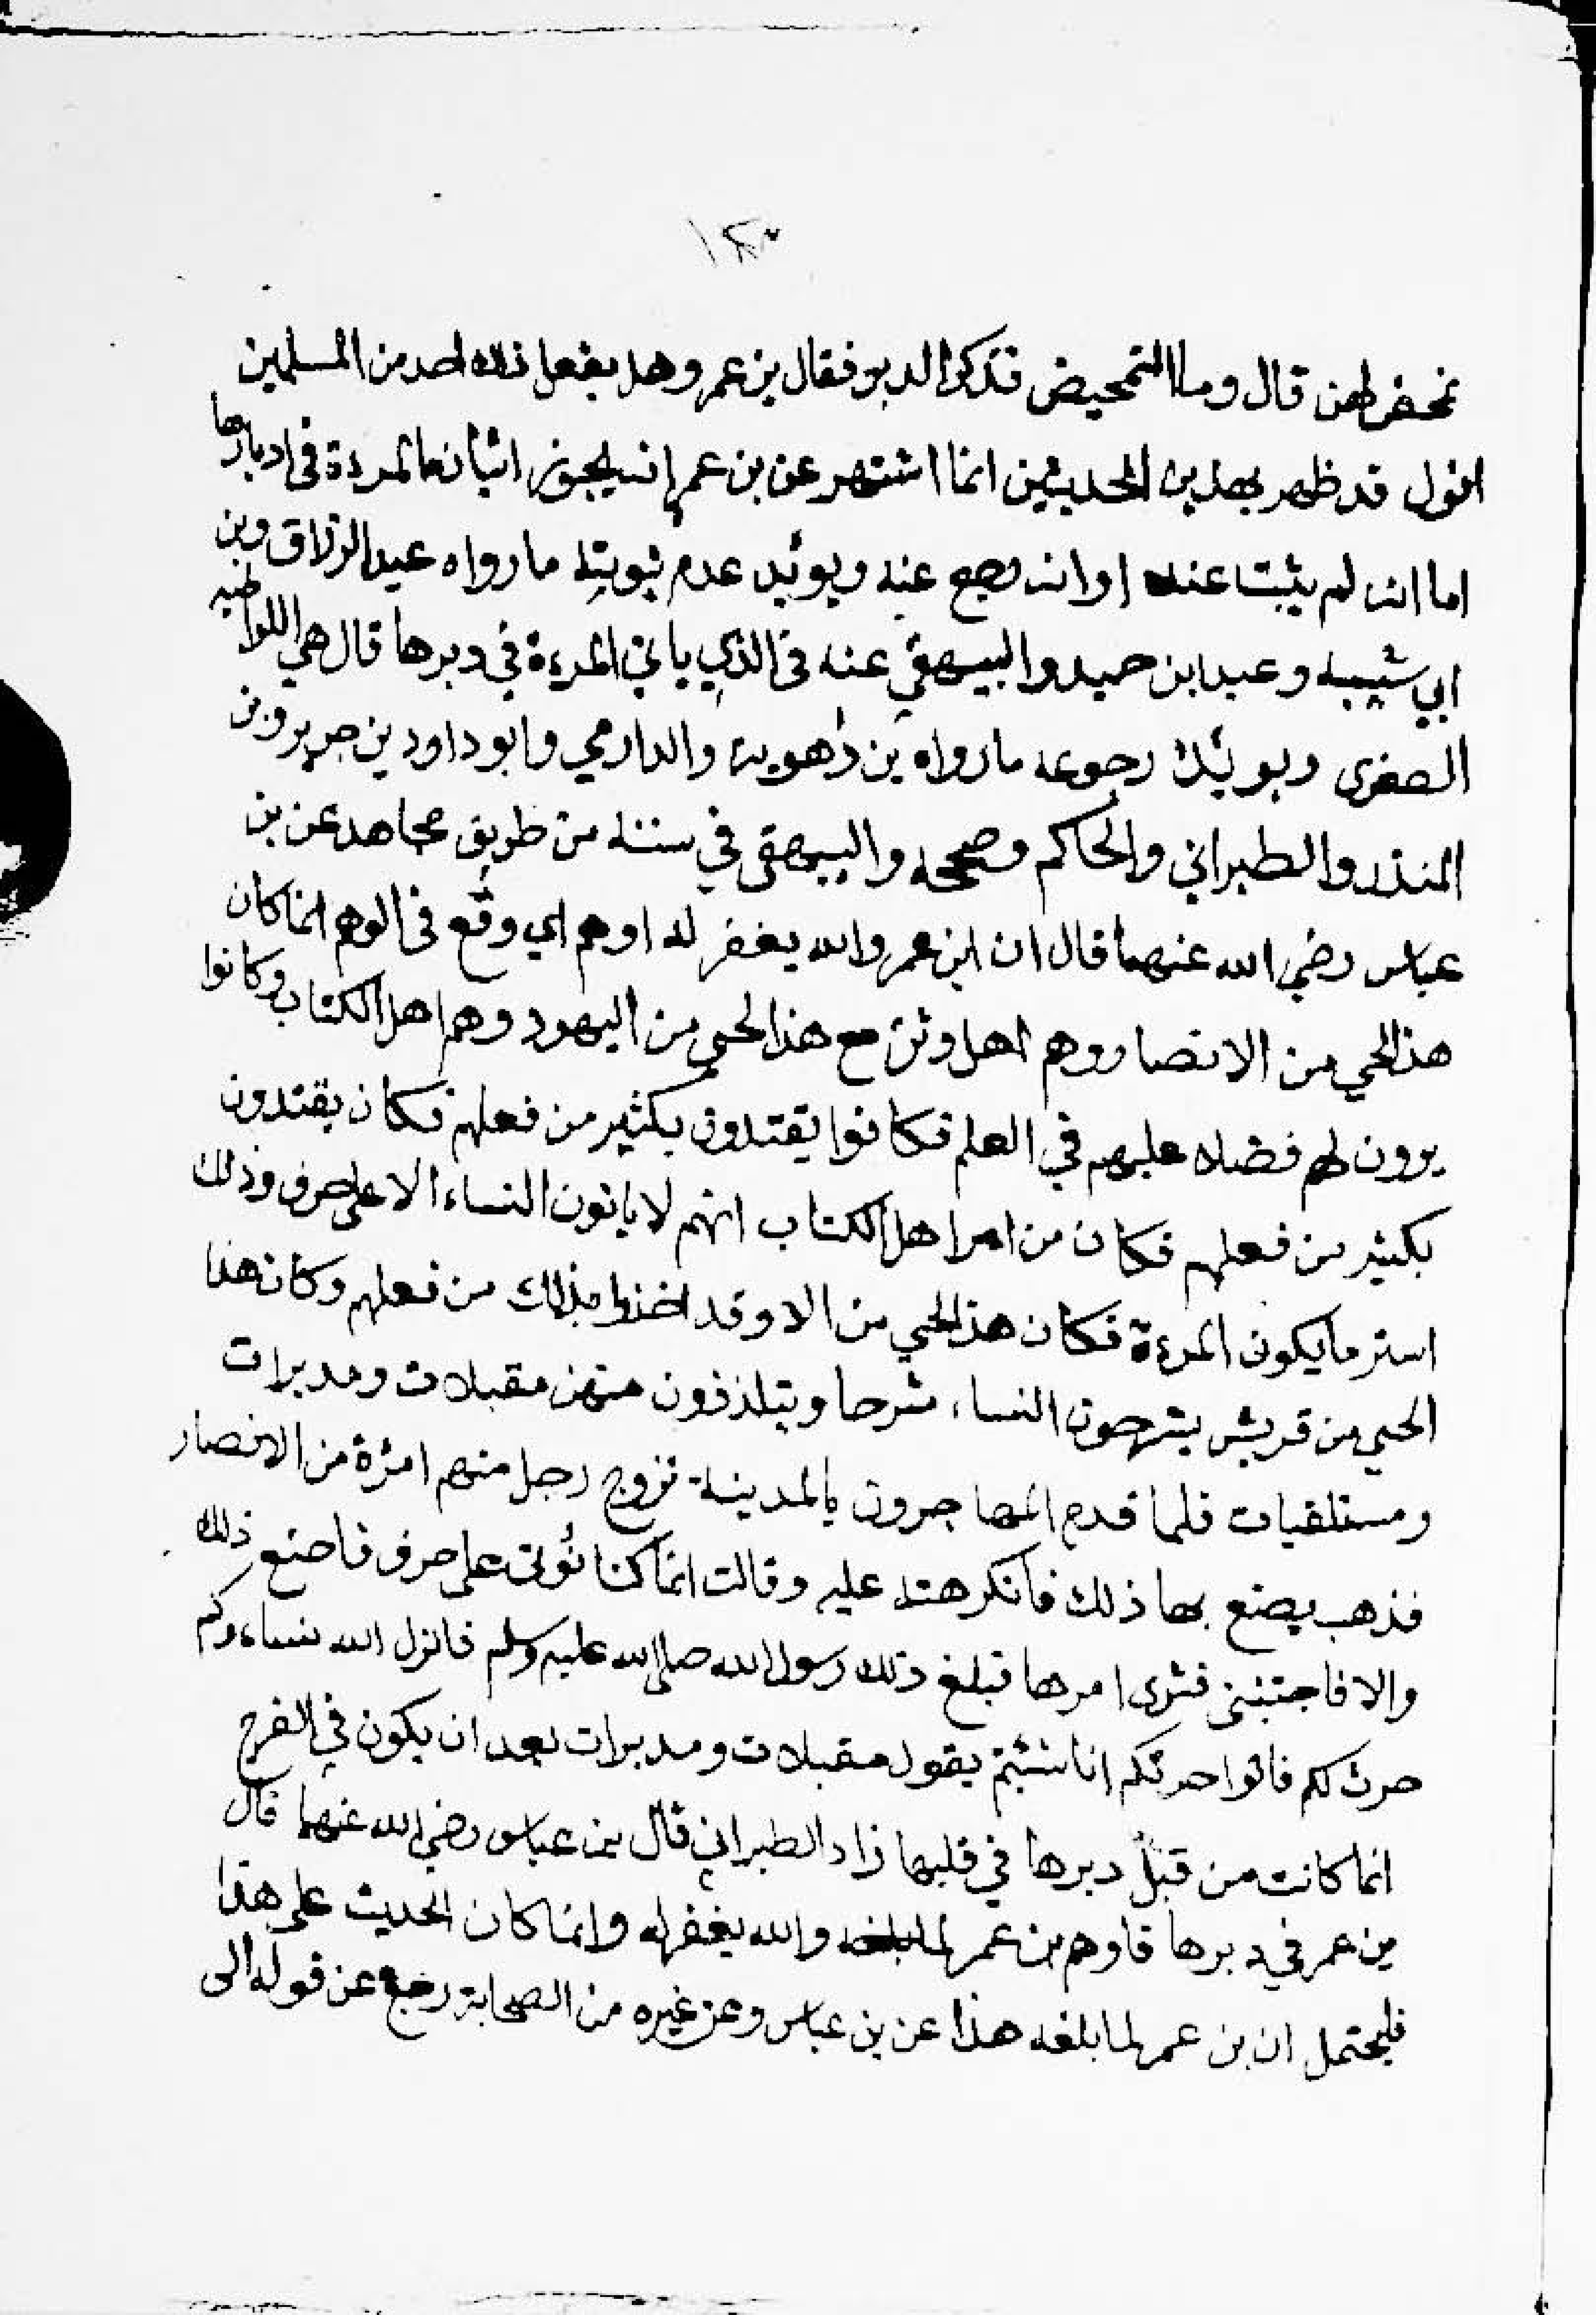 ١٢٣
نحمض لهن قال وما التحميض فذكر الدبر فقال بن عمر وهل يفعل ذلك احد من المسلمين
اقول قد ظهر بهذين الحديثين انما اشتهر عن بن عمر انه يجوز اتيان المرءة في ادبارها
اما انه لم يثبت عنه او انه رجع عنه ويوئيد عدم ثبوته ما رواه عبد الرزاق وبن
ابي شيبه وعبد ابن حميد والبيهقي عنه في الذي ياتي المرءة في دبرها قال هي اللواطيه
الصغرى ويوئيد رجوعه ما رواه بن راهويه والدارمي وابو داود بن جرير وبن
المنذر والطبراني والحاكم وصححه والبيهقي في سننه من طريق مجاهد عن بن
عباس رضي الله عنهما قال ان ابن عمر والله يغفر له اوهم اي وقع في الوهم انما كان
هذا الحي من الانصار وهم اهل وثن مع هذا الحي من اليهود وهم اهل الكتاب وكانوا
يرون لهم فضلا عليهم في العلم فكانوا يقتدون بكثير من فعلهم فكان يقتدون
بكثير من فعلهم فكان من امر اهل الكتاب انهم لا ياتون النساء الا على حرف وذلك
استر ما يكون المرءة فكان هذا الحي من الا وقد اخذوا بذلك من فعلهم وكان هذا
الحي من قريش يشرحون النساء شرحا ويتلذذون منهن مقبلات ومدبرات
ومستلقيات فلما قدم المهاجرون بالمدينة تزوج رجل منهم امرءة من الانصار
فذهب يصنع بها ذلك فانكرهته عليه وقالت انما كنا نؤتى على حرف فاصنع ذلك
والا فاجتنبني فشرى امرها فبلغ ذلك رسول الله صلى الله عليه وسلم فانزل الله نساءوكم
حرث لكم فاتوا حرثكم انا شئتم يقول مقبلات ومدبرات بعد ان يكون في الفرج
انما كانت من قبل دبرها في قلبها زاد الطبراني قال بن عباس رضي الله عنهما قال
بن عمر في دبرها فاوهم بن عمر لما بلغه والله يغفر له وانما كان الحديث على هذا
فليحتمل ان بن عمر لما بلغه هذا عن بن عباس وعن غيره من الصحابة رجع عن قوله الى